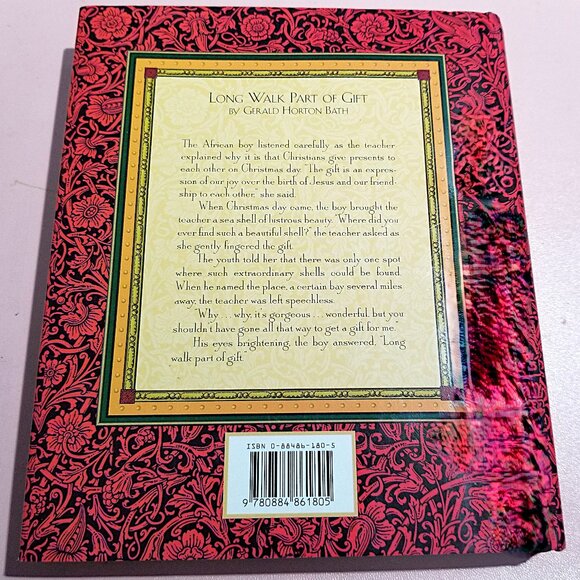 LONG WALK PART OF GIFT
BY GERALD HORTON BATH
The African boy listened carefully as the teacher
explained why it is that Christians give presents to
each other on Christmas day. "The gift is an expres-
sion of our joy over the birth of Jesus and our friend-
ship to each other," she said.
When Christmas day came, the boy brought the
teacher a sea shell of lustrous beauty. "Where did you
ever find such a beautiful shell?" the teacher asked as
she gently fingered the gift.
The youth told her that there was only one spot
where such extraordinary shells could be found.
When he named the place, a certain bay several miles
away, the teacher was left speechless.
"Why . . . why, it's gorgeous . . . wonderful, but you
shouldn't have gone all that way to get a gift for me."
His eyes brightening, the boy answered, "Long
walk part of gift."
ISBN 0-88486-180-5
9 780884 861805